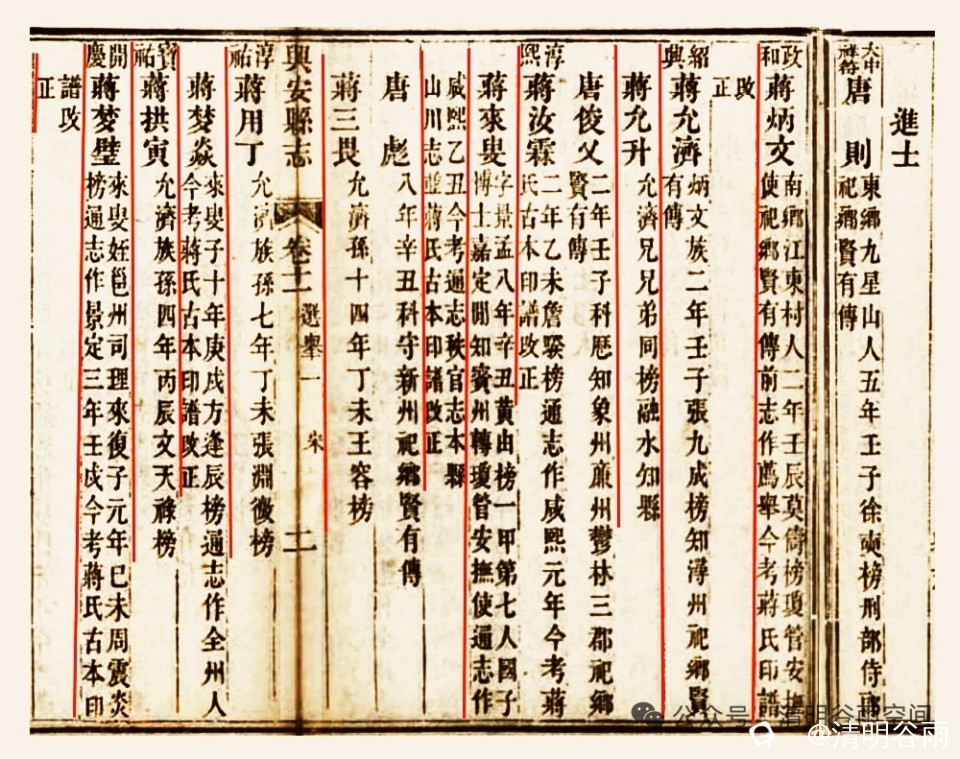 進士
大中祥符
唐則
東鄉九星山人五年壬子徐奭榜刑部侍郎
祀鄉賢有傳
政和
蔣炳文
南鄉江東村人二年壬辰莫儔榜瓊管安撫
使祀鄉賢有傳前志作薦舉今考蔣氏印譜
改
正
紹興
蔣允濟
炳文族二年壬子張九成榜知潯州祀鄉賢
有傳
蔣允升
允濟兄兄弟同榜融水知縣
唐俊乂
二年壬子科歷知象州廉州鬱林三郡祀鄉
賢有傳
淳熙
蔣汝霖
二年乙未詹騤榜通志作咸熙元年今考蔣
氏古本印譜改正
蔣來叟
字景孟八年辛丑黄由榜一甲第七人國子
博士嘉定間知賓州轉瓊管安撫使通志作
咸熙乙丑今考通志秩官志本縣
山川志並蔣氏古本印譜改正
唐彪
八年辛丑科守新州祀鄉賢有傳
蔣三畏
允濟孫十四年丁未王容榜
興安縣志
卷十一
選舉一
宋
二
淳祐
蔣用丁
允濟族孫七年丁未張淵微榜
蔣梦焱
來叟子十年庚戌方逢辰榜通志作全州人
今考蔣氏古本印譜改正
寶祐
蔣拱寅
允濟族孫四年丙辰文天祿榜
開慶
蔣梦璧
來叟姪邕州司理來復子元年已未周震炎
榜通志作景定三年壬戌今考蔣氏古本印
譜改
正
公众号·清明谷雨空间
@清明谷雨